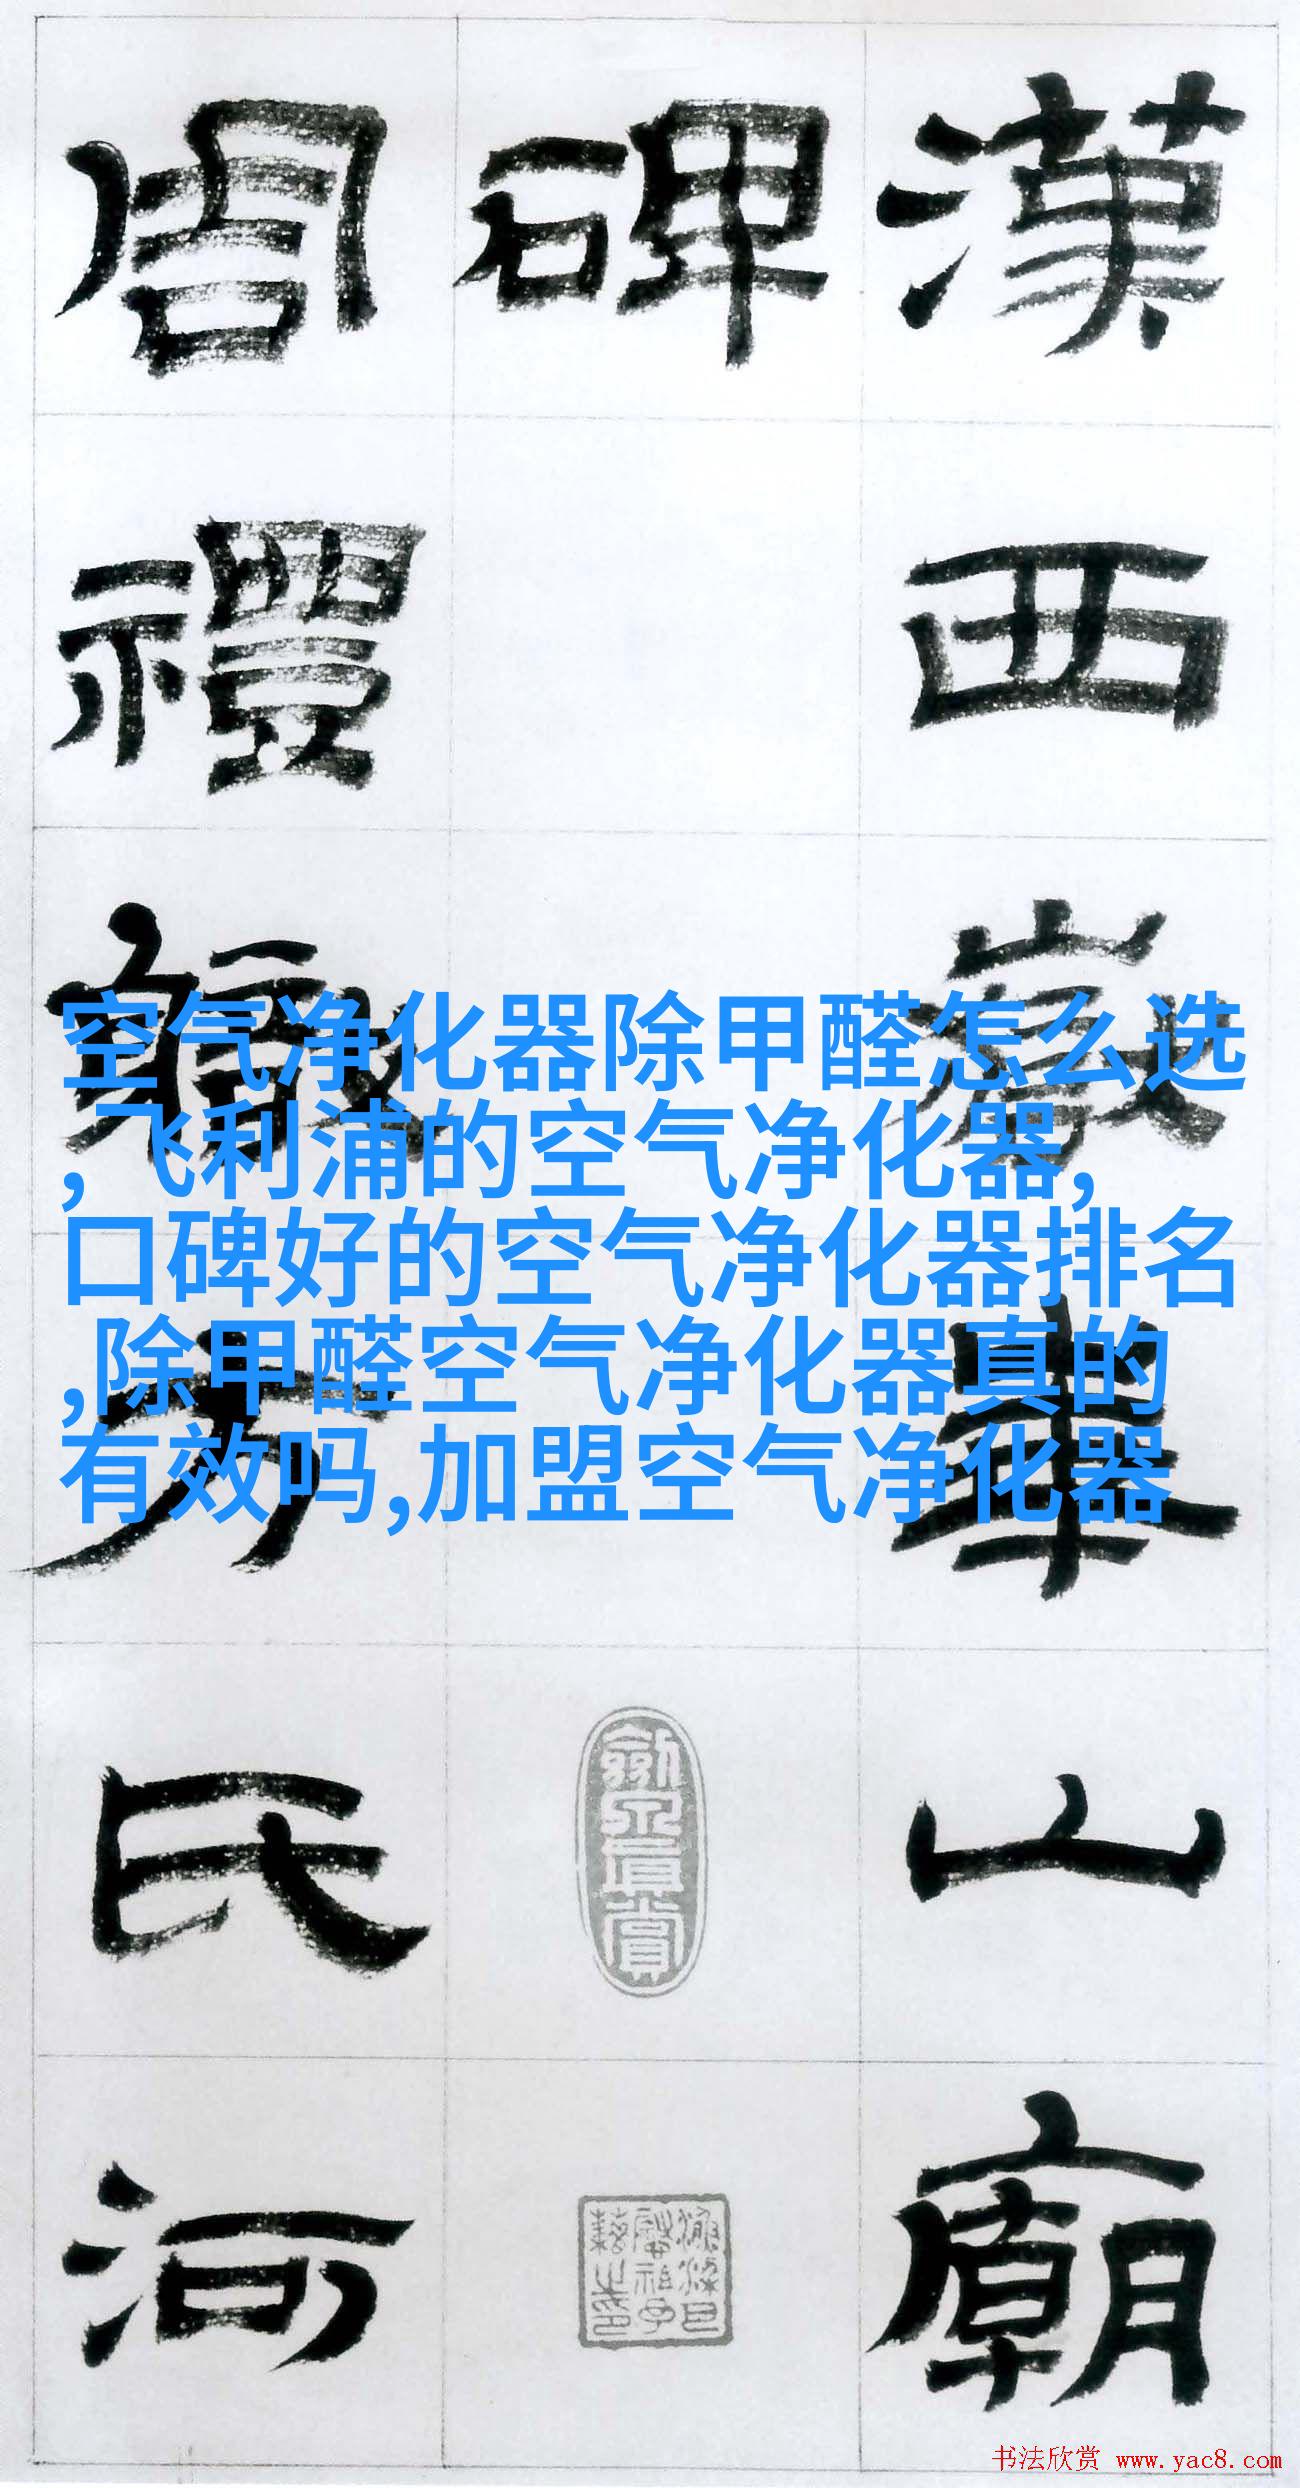 漢西嶽華山廟
碑
周禮職方氏河
空气净化器除甲醛怎么选
,飞利浦的空气净化器,
口碑好的空气净化器排名
,除甲醛空气净化器真的
有效吗,加盟空气净化器
书法欣赏 www.yac8.com